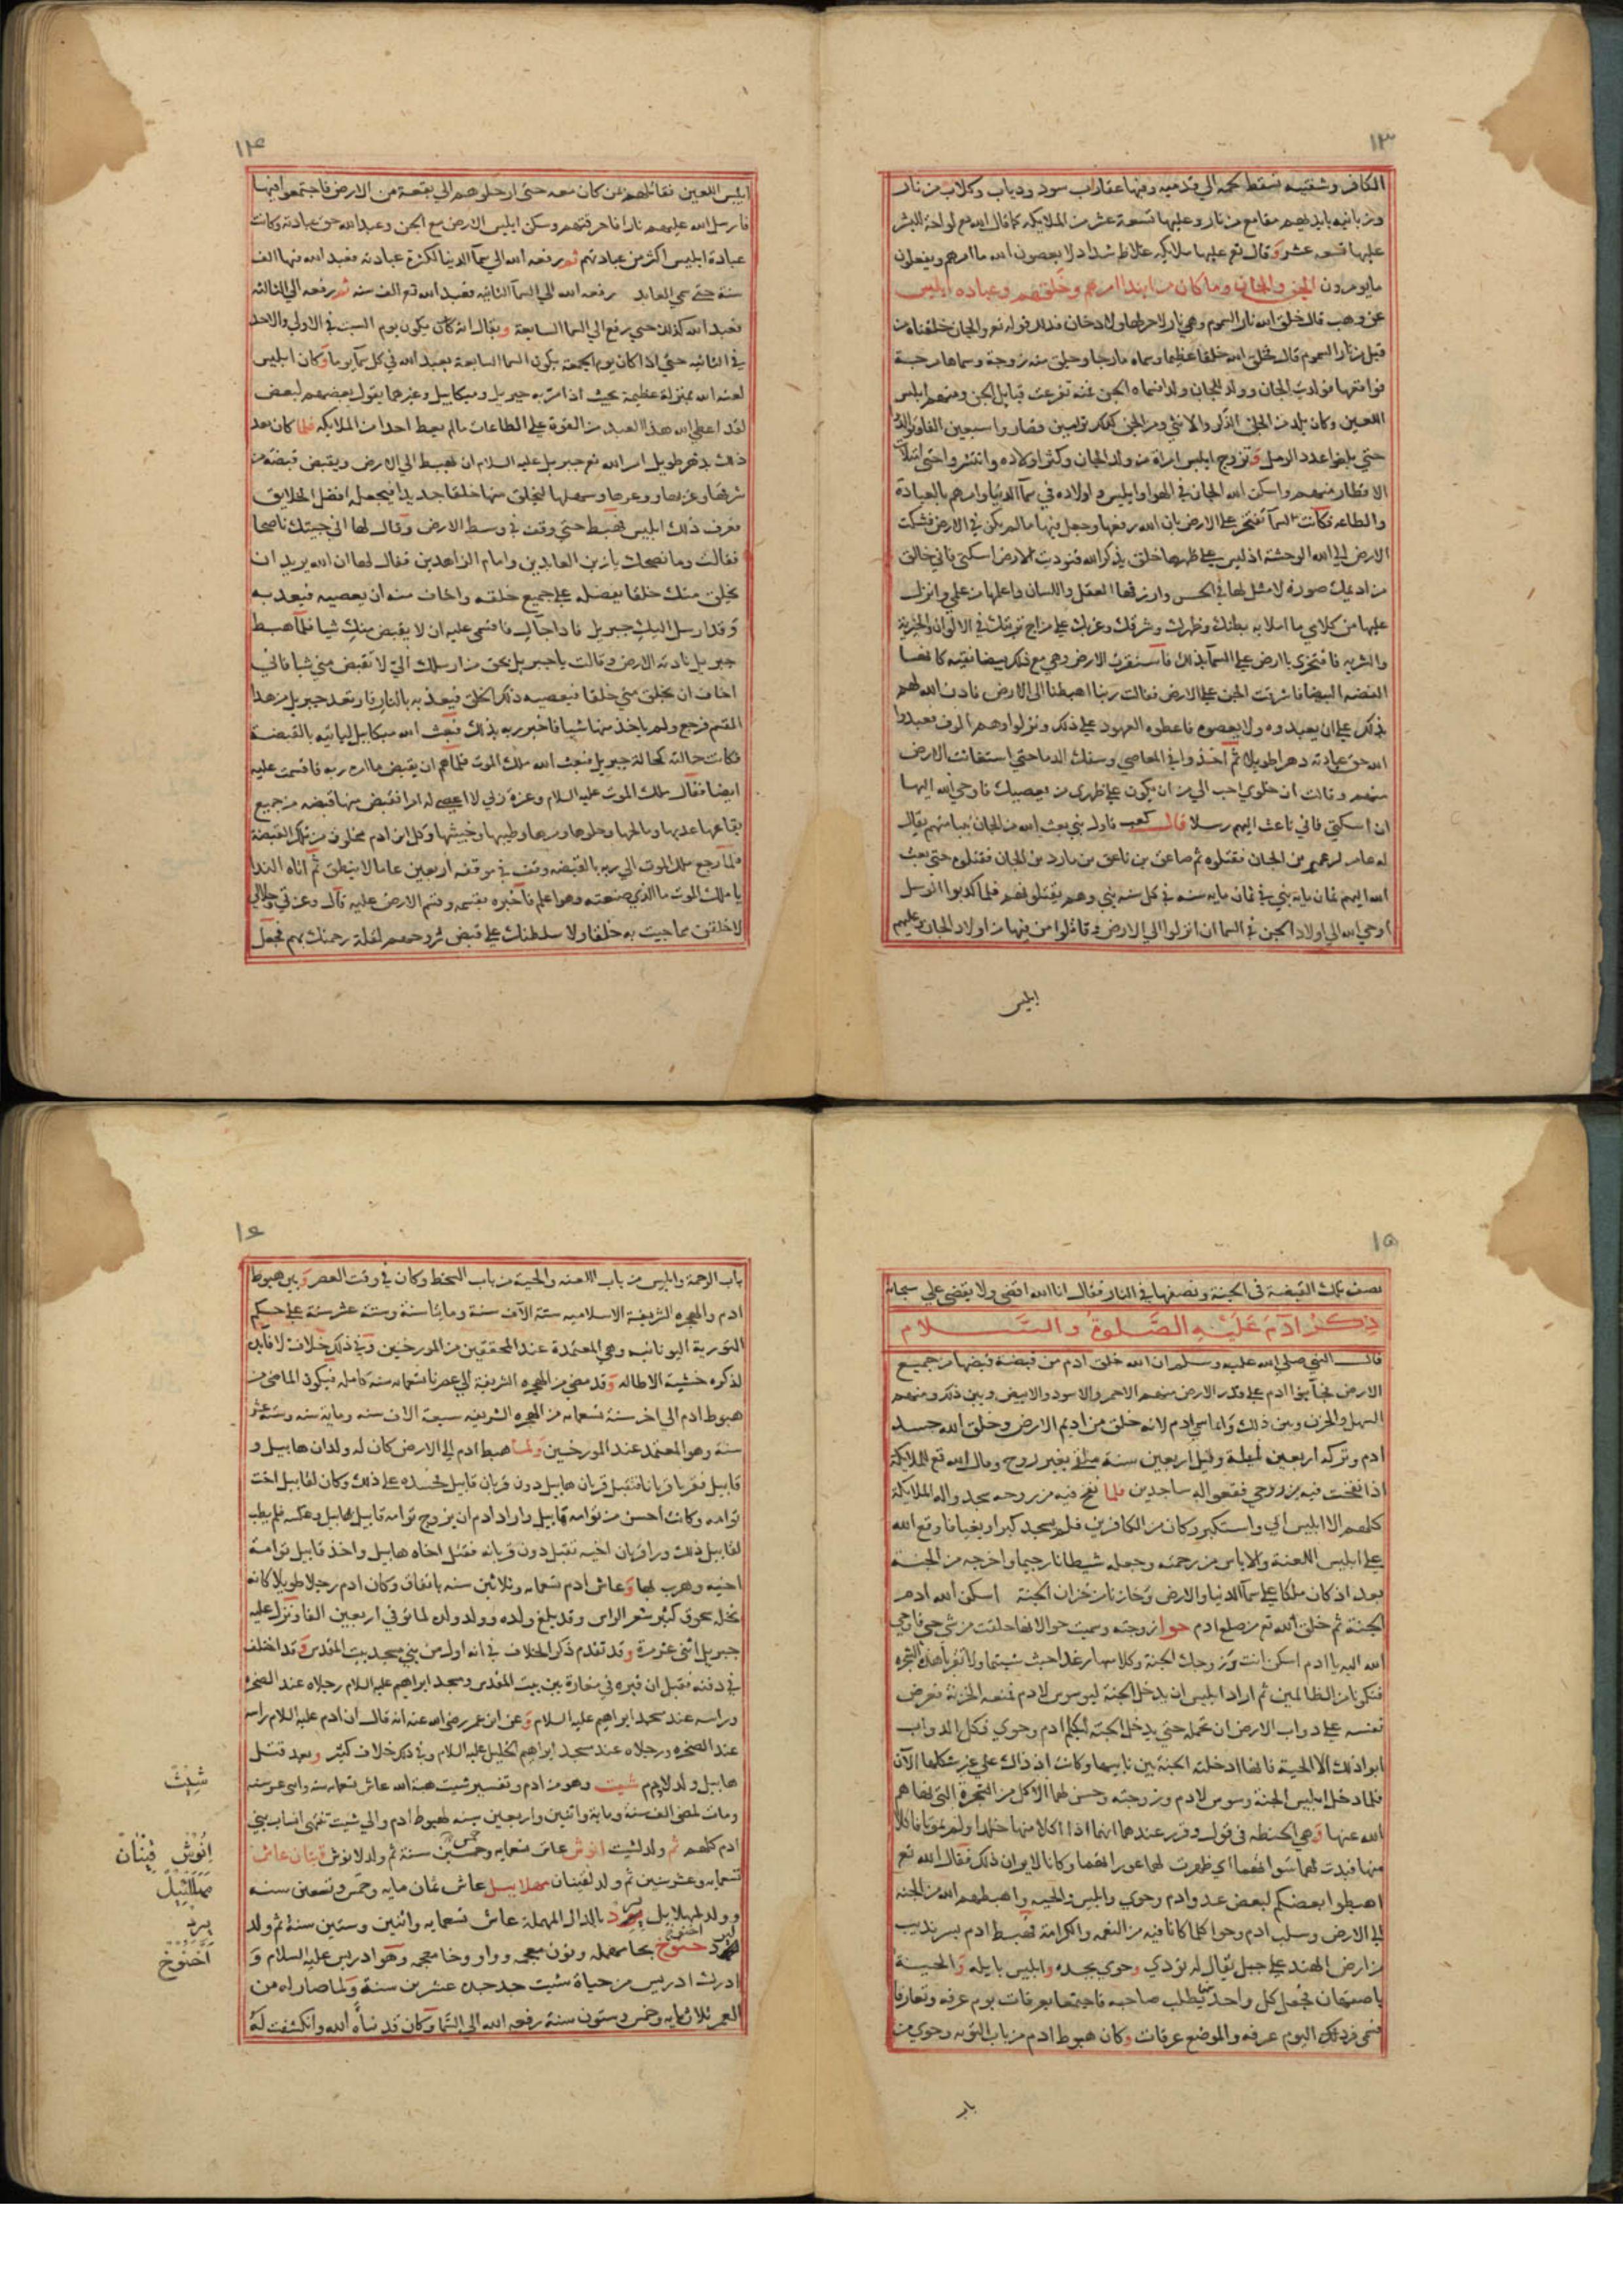 ١٣
الكافر وشفتيه تسقط لحمه الي قدميه وفيها عقارب سود وذياب وكلاب من نار
وزبانيه بايديهم مقامع من نار وعليها تسعة عشر من الملايكه كما قال الله تع لواحة للبشر
عليها تسعه عشر وقال تع عليها ملايكه غلاظ شداد لا يعصون الله ما امرهم ويفعلون
ما يومرون الجن والجان وما كان من ابتدا امرهم وخلقهم وعباده ابليس
عن وهب قال خلق الله نار السموم وهي نار لا حر لها ولا دخان فذلك قوله تع والجان خلقناه من
قبل من نار السموم قال فخلق الله خلقا عظيما وسماه مارجا وخلق منه زوجة وسماها مرجة
فواقعها فولدت الجان وولد للجان ولدا سماه الجن فمنه تفرعت قبايل الجن ومنهم ابليس
اللعين وكان يلد من الجان الذكر والانثي ومن الجن كذلك توامين فصاروا سبعين الفا وتوالدوا
حتي بلغوا عدد الرمل وتزوج ابليس امراة من ولد الجان وكثر اولاده وانتشروا حتي امتلات
الاقطار منهم واسكن الله الجان في الهوا وابليس واولاده في سما الدنيا وامرهم بالعبادة
والطاعه فكانت السما تفتخر علي الارض بان الله رفعها وجعل فيها ما لم يكن في الارض فشكت
الارض الي الله الوحشة اذ ليس علي ظهرها خلق يذكر الله فنوديت الارض اسكني فاني خالق
من اديمك صورة لا مثل لها في الحسن وارزقها العقل واللسان واعلمها من علمي وانزل
عليها من كلامي ما املا به بطنك وظهرك وشرقك وغربك علي مزاج تربتك في الالوان والحرية
والشريه فافتخري يا ارض علي السما بذلك فاستقرت الارض وهي مع ذلك بيضا نقيه كانها
الفضه البيضا فاشرفت الجن علي الارض فقالت ربنا اهبطنا الي الارض فاذن الله لهم
بذلك علي ان يعبدوه ولا يعصوه فاعطوه العهود علي ذلك ونزلوا وهم الوف فعبدوا
الله حق عبادته دهرا طويلا ثم اخذوا في المعاصي وسفك الدما حتي استغاثت الارض
منهم وقالت ان خلوي احب الي من ان يكون علي ظهري من يعصيك فاوحي الله اليها
ان اسكني فاني باعث اليهم رسلا قال كعب فاول نبي بعث الله من الجان نبيا منهم يقال
له عامر بن عمير من الجان فقتلوه ثم صاعق بن ناعق بن مارد بن الجان فقتلوه حتي بعث
الله اليهم ثمان ماية نبي في ثمان مايه سنه في كل سنه نبي وهم يقتلونهم فلما كذبوا الرسل
اوحي الله الي اولاد الجن في السما ان انزلوا الي الارض وقاتلوا من فيها من اولاد الجان وعليهم
ابليس
١٤
ابليس اللعين فقاتلهم من كان معه حتي ادخلوهم الي بقعة من الارض فاجتمعوا فيها
فارسل الله عليهم نارا فاحرقتهم وسكن ابليس الارض مع الجن وعبد الله حق عبادته وكانت
عبادة ابليس اكثر من عبادتهم ثم رفعه الله الي سما الدنيا لكثرة عبادته فعبد الله فيها الف
سنة حتي سمي العابد رفعه الله الي السما الثانيه فعبد الله تع الف سنه ثم رفعه الي الثالثه
فعبد الله كذلك حتي رفع الي السما السابعة ويقال انه كان يكون يوم السبت في الاولي والاحد
في الثانيه حتي اذا كان يوم الجمعة يكون السما السابعة يعبد الله في كل سما يوما وكان ابليس
لعنه الله بمنزلة عظيمة بحيث اذا مر به جبريل وميكاييل وغيرهما يقول بعضهم لبعض
لقد اعطي الله هذا العبد من القوة علي الطاعات ما لم يعط احدا من الملايكه فلما كان بعد
ذلك بدهر طويل امر الله تع جبريل عليه السلام ان يهبط الي الارض ويقبض قبضة من
شرقها وغربها ووعرها وسهلها ليخلق منها خلقا جديدا فيجعله افضل الخلايق
فعرف ذلك ابليس فهبط حتي وقف في وسط الارض وقال لها اني جيتك ناصحا
فقالت وما نصحك يا زين العابدين وامام الزاهدين فقال لها ان الله يريد ان
يخلق منك خلقا يفضله علي جميع خلقه واخاف منه ان يعصيه فيعذبه
وقد ارسل اليك جبريل فاذا جاك فاقسمي عليه ان لا يقبض منك شيا فلما هبط
جبريل نادته الارض وقالت يا جبريل بحق من ارسلك الي لا تقبض مني شيا فاني
اخاف ان يخلق مني خلقا فيعصيه ذلك الخلق فيعذبه بالنار فارتعد جبريل من هذا
القسم فرجع ولم ياخذ منها شيا فاخبر ربه بذلك فبعث الله ميكاييل لياتيه بالقبضة
فكانت حالته كحالة جبريل فبعث الله ملك الموت فلما هم ان يقبض ما امره ربه فاقسمت عليه
ايضا فقال ملك الموت عليه السلام وعزة ربي لا اعصي له امرا فقبض منها قبضه من جميع
بقاعها عذبها ومالحها وحلوها ومرها وطيبها وخبيثها وكل ابن ادم مخلوق من تلك القبضة
فلما رجع ملك الموت الي ربه بالقبضه وقف في موقفه اربعين عاما لا ينطق ثم اتاه الندا
يا ملك الموت ما الذي صنعت وهو اعلم فاخبره بقسمه وقسم الارض عليه قال وعزتي وجلالي
لاخلقن مما جيت به خلقا ولا سلطنك علي قبض روحهم لقلة رحمتك بهم فجعل
١٥
نصف تلك القبضة في الجنة ونصفها في النار فقال انا الله اقضي ولا يقضي علي سبحانه
ذكر ادم عليه الصلوة والسلام
قال النبي صلي الله عليه وسلم ان الله خلق ادم من قبضة قبضها من جميع
الارض فجا بنوا ادم علي قدر الارض منهم الاحمر والاسود والابيض وبين ذلك ومنهم
السهل والحزن وبين ذلك وانما سمي ادم لانه خلق من اديم الارض وخلق الله جسد
ادم وتركه اربعين ليلة وقيل اربعين سنة ملقي بغير روح وقال الله تع للملايكة
اذا نفخت فيه من روحي فقعوا له ساجدين فلما نفخ فيه من روحه سجد واله الملايكة
كلهم الا ابليس ابي واستكبر وكان من الكافرين فلم يسجد كبرا وبغيا فاوقع الله
علي ابليس اللعنة والاياس من رحمته وجعله شيطانا رجيما واخرجه من الجنة
بعد ان كان ملكا علي سما الدنيا والارض وخازنا من خزان الجنة اسكن الله ادم
الجنة ثم خلق الله تع من ضلع ادم حوا زوجته وسميت حوا لانها خلقت من شي حي فاوحي
الله اليه يا ادم اسكن انت وزوجك الجنة وكلا منها رغدا حيث شيتما ولا تقربا هذه الشجره
فتكونا من الظالمين ثم اراد ابليس ان يدخل الجنة ليوسوس لادم فمنعه الخزنة فعرض
نفسه علي دواب الارض ان تحمله حتي يدخل الجنة ليكلم ادم وحوي فكل الدواب
ابوا ذلك الا الحية فانها ادخلته الجنة بين نابيها وكانت اذ ذاك علي غير شكلها الآن
فلما دخل ابليس الجنة وسوس لادم وزوجته وحسن لهما الاكل من الشجرة التي نهاهم
الله عنها وهي الحنطه في قول وقرر عندهما انهما اذا اكلا منها خلدا ولم يموتا فاكلا
منها فبدت لهما سواتهما اي ظهرت لهما عوراتهما وكانا لا يريان ذلك فقال الله تع
اهبطوا بعضكم لبعض عدو ادم وحوي وابليس والحيه واهبطهم الله من الجنه
الي الارض وسلب ادم وحوا كلما كانا فيه من النعمه والكرامة فهبط ادم بسرنديب
من ارض الهند علي جبل يقال له نودي وحوي بجده وابليس بايله والحية
باصبهان فجعل كل واحد منهما يطلب صاحبه فاجتمعا بعرفات يوم عرفه وتعارفا
فسمي ذلك اليوم عرفه والموضع عرفات وكان هبوط ادم من باب التوبه وحوي من
باب
١٦
باب الرحمة وابليس من باب اللعنه والحية من باب السخط وكان في وقت العصر وبين هبوط
ادم والهجره الشريفة الاسلاميه ستة الآف سنة ومايتا سنة وستة عشر سنة علي حكم
التورية اليونانيه وهي المعتمدة عند المحققين من المورخين وفي ذلك خلاف لا فايدة
لذكره خشية الاطاله وقد مضي من الهجره الشريفة الي عصرنا تسعمايه سنة كامله فيكون الماضي من
هبوط ادم الي اخر سنة تسعمايه من الهجره الشريفه سبعة الاف سنه وماية سنه وستة عشر
سنة وهو المعتمد عند المورخين ولما هبط ادم الي الارض كان له ولدان هابيل و
قابيل فقربا قربانا فتقبل قربان هابيل دون قربان قابيل فحسده علي ذلك وكان لقابيل اخت
توامه وكانت أحسن من توامه هابيل واراد ادم ان يزوج توامه قابيل لهابيل وعكسه فلم يطب
لقابيل ذلك وراي قربان اخيه تقبل دون قربانه فقتل اخاه هابيل واخذ قابيل توامة
اخيه وهرب بها وعاش ادم تسعمايه وثلاثين سنه باتفاق وكان ادم رجلا طويلا كانه
نخله سحوق كثير شعر الراس وقد بلغ ولده وولد ولده لما توفي اربعين الفا ونزل عليه
جبريل اثني عشر مرة وقد تقدم ذكر الخلاف في انه اول من بني مسجد بيت المقدس وقد اختلف
في دفنه فقيل ان قبره في مغارة بين بيت المقدس ومسجد ابراهيم عليه السلام رجلاه عند الصخرة
وراسه عند مسجد ابراهيم عليه السلام وعن ابن عمر رضي الله عنه انه قال ان ادم عليه السلام راسه
عند الصخره ورجلاه عند مسجد ابراهيم الخليل عليه السلام وفي ذلك خلاف كثير وبعد قتل
هابيل ولد لادم شيث وهو من ادم وتفسير شيث هبة الله عاش تسعمايه سنه واثني عشر سنه
ومات لمضي الف سنة وماية واثنين واربعين سنه لهبوط ادم والي شيث تنتهي انساب بني
ادم كلهم ثم ولد لشيث انوش عاش تسعمايه وخمس سنة ثم ولد لانوش قينان عاش
تسعمايه وعشر سنين ثم ولد لقينان مهلاييل عاش ثمان مايه وخمس وتسعين سنه
وولد لمهلاييل يرد بالدال المهملة عاش تسعمايه واثنين وستين سنة ثم ولد
ليرد حنوخ بحا مهمله ونون معجمه وواو وخا معجمه وهو ادريس عليه السلام و
ادرك ادريس من حياة شيث جد جده عشرين سنة ولما صار له من
العمر ثلاثمايه وخمس وستون سنة رفعه الله الي السما وكان قد نباه الله وانكشفت له
شيث
انوش قينان
مهلائيل
يرد
اخنوخ